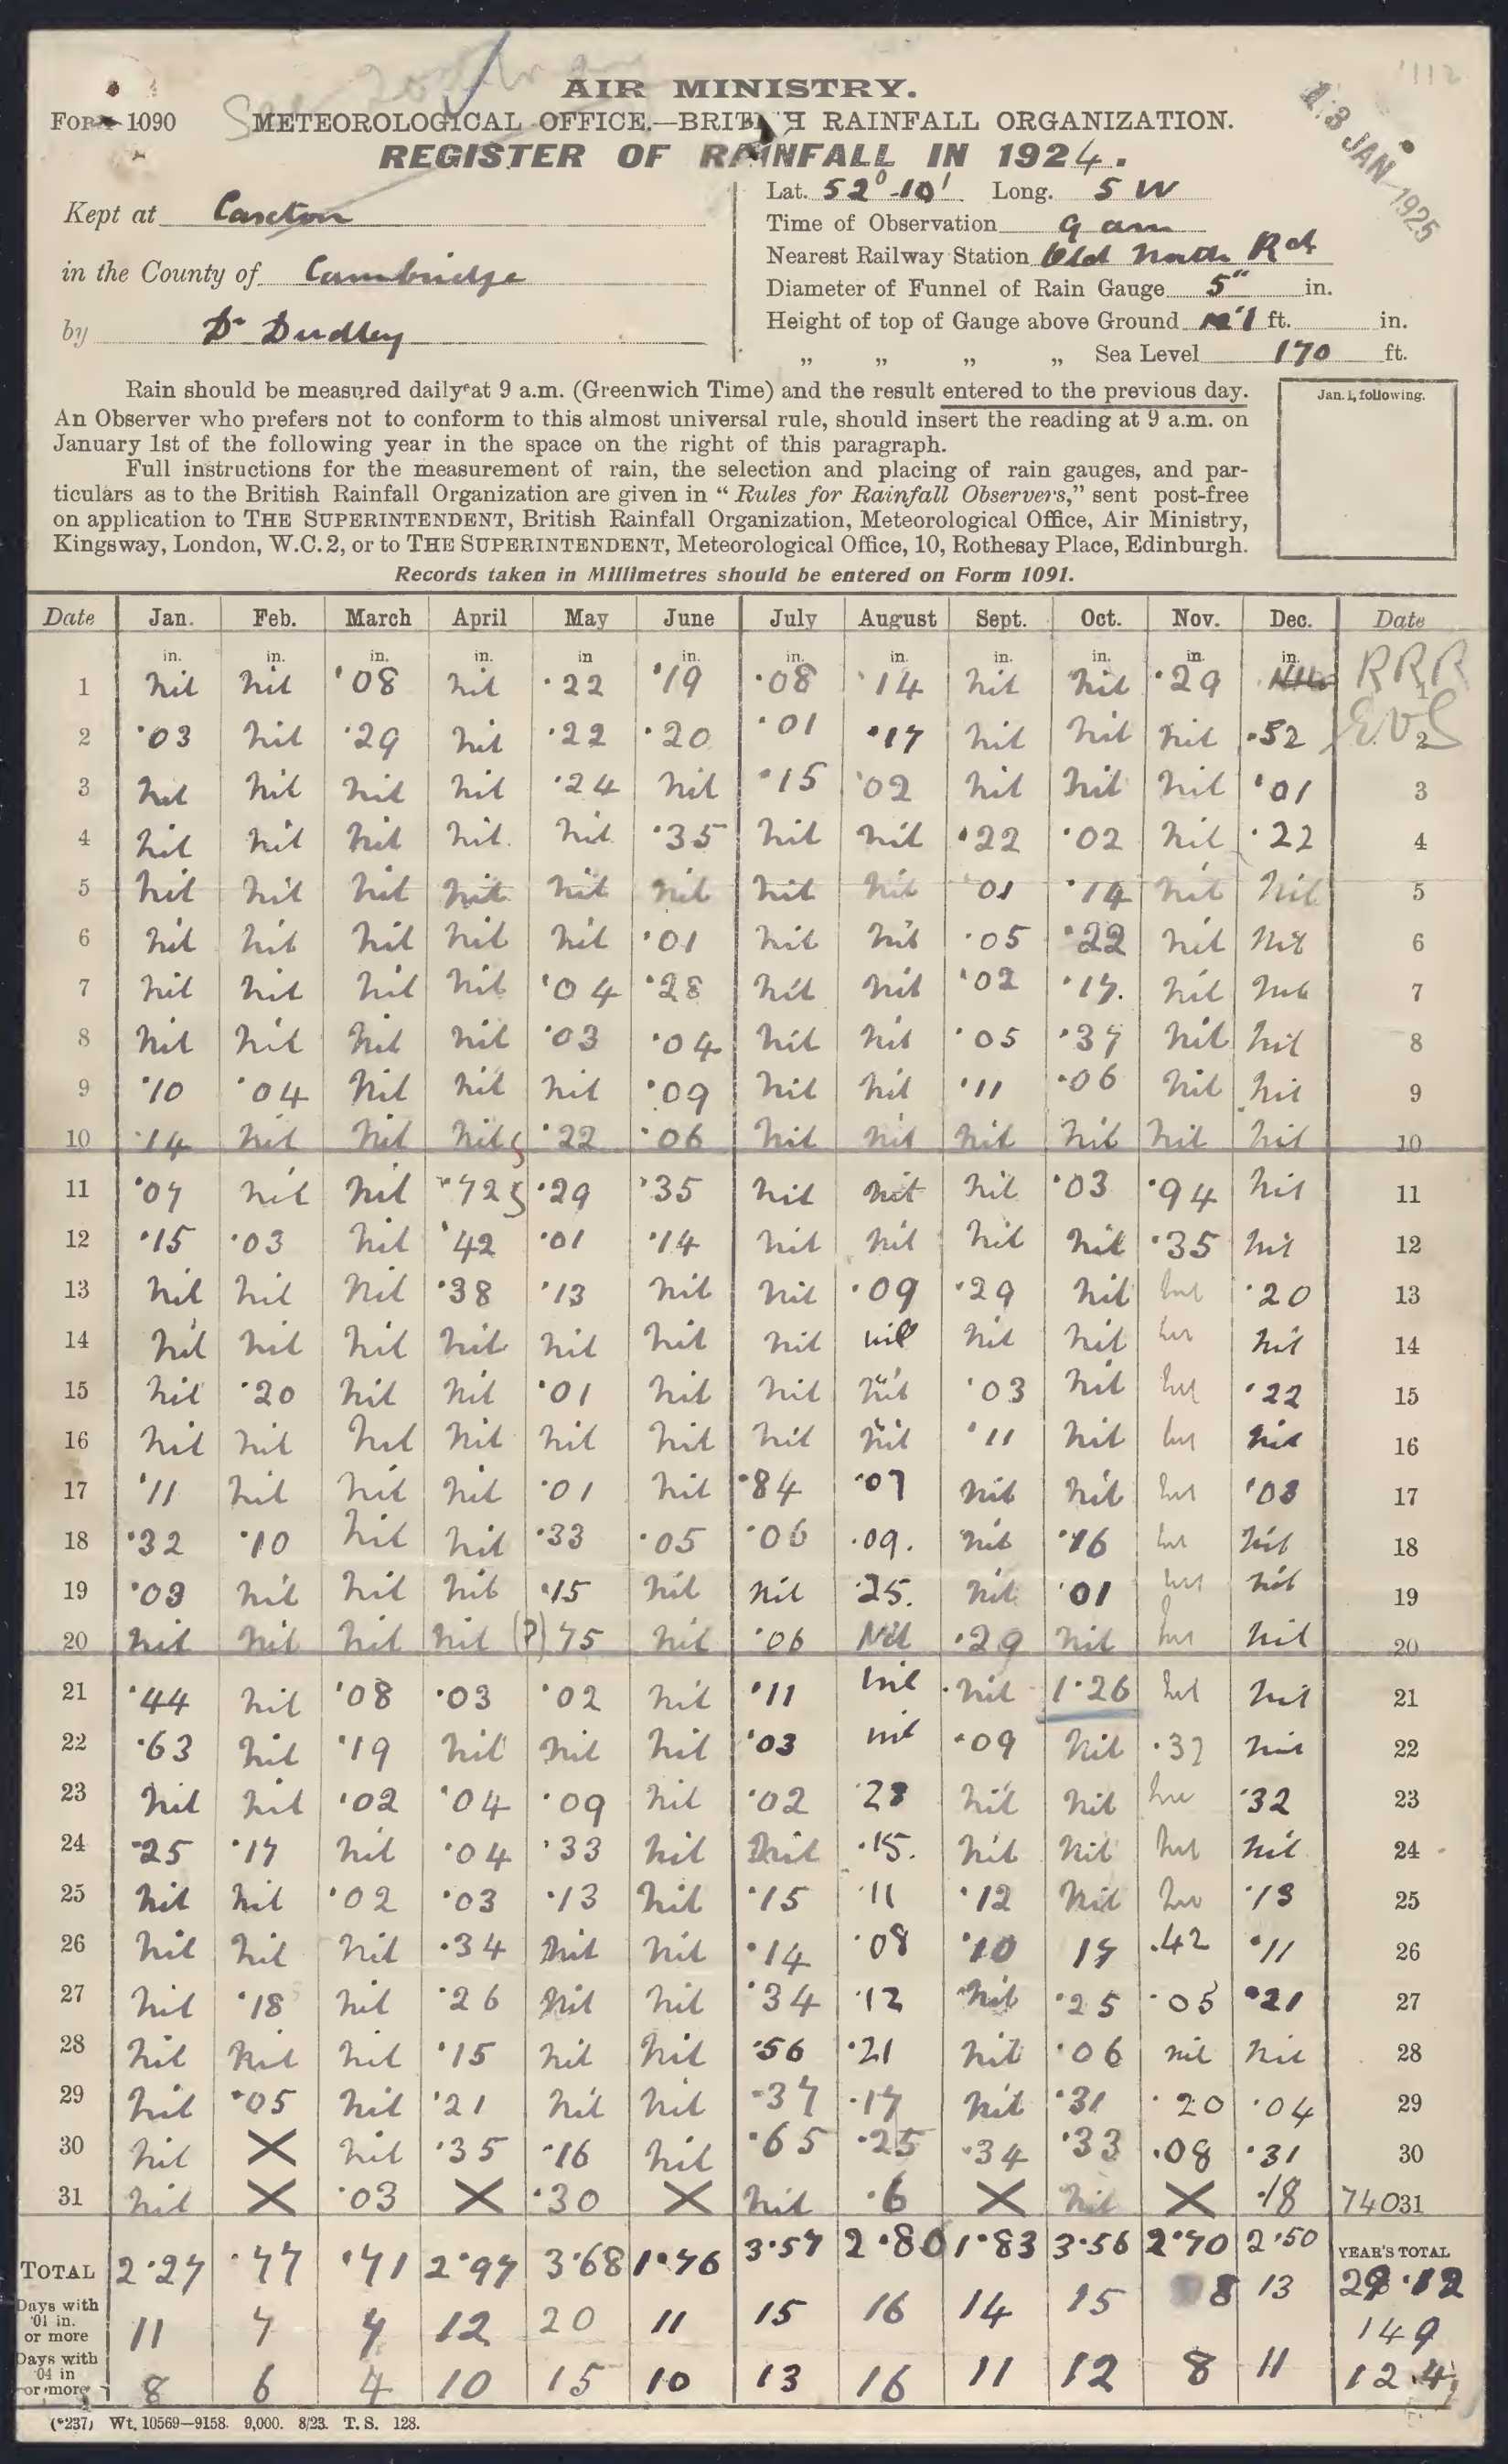 AIR MINISTRY.
FORM 1090 METEOROLOGICAL OFFICE.—BRITISH RAINFALL ORGANIZATION.
REGISTER OF RAINFALL IN 1924.
13 JAN 1925
Kept at Caxton
in the County of Cambridge
by Dr Dudley
Lat. 52° 10' Long. 5 W
Time of Observation 9 am
Nearest Railway Station Old North Rd
Diameter of Funnel of Rain Gauge 5" in.
Height of top of Gauge above Ground 1 ft. in.
„ „ „ „ Sea Level 170 ft.
Rain should be measured daily at 9 a.m. (Greenwich Time) and the result entered to the previous day.
An Observer who prefers not to conform to this almost universal rule, should insert the reading at 9 a.m. on
January 1st of the following year in the space on the right of this paragraph.
Jan. 1, following.
Full instructions for the measurement of rain, the selection and placing of rain gauges, and par-
ticulars as to the British Rainfall Organization are given in “Rules for Rainfall Observers,” sent post-free
on application to THE SUPERINTENDENT, British Rainfall Organization, Meteorological Office, Air Ministry,
Kingsway, London, W.C.2, or to THE SUPERINTENDENT, Meteorological Office, 10, Rothesay Place, Edinburgh.
Records taken in Millimetres should be entered on Form 1091.
Date Jan. Feb. March April May June July August Sept. Oct. Nov. Dec. Date
in. in. in. in. in in. in. in. in. in. in. in. RRR
1 nil nil .08 nil .22 .19 .08 .14 nil nil .29 Nil 1
2 .03 nil .29 nil .22 .20 .01 .17 nil nil nil .52 2
3 nil nil nil nil .24 nil .15 .02 nil nil nil .01 3
4 nil nil nil nil nil .35 nil nil .22 .02 nil .22 4
5 nil nil nil nil nil nil nil nil .01 .14 nil nil 5
6 nil nil nil nil nil .01 nil nil .05 .22 nil nil 6
7 nil nil nil nil .04 .28 nil nil .02 .17 nil nil 7
8 nil nil nil nil .03 .04 nil nil .05 .37 nil nil 8
9 .10 .04 nil nil nil .09 nil nil .11 .06 nil nil 9
10 .14 nil nil nil .22 .06 nil nil nil nil nil nil 10
11 .07 nil nil .72 .29 .35 nil nil nil .03 .94 nil 11
12 .15 .03 nil .42 .01 .14 nil nil nil nil .35 nil 12
13 nil nil nil .38 .13 nil nil .09 .29 nil nil .20 13
14 nil nil nil nil nil nil nil nil nil nil nil nil 14
15 nil .20 nil nil .01 nil nil nil .03 nil nil .22 15
16 nil nil nil nil nil nil nil nil .11 nil nil nil 16
17 .11 nil nil nil .01 nil .84 .07 nil nil nil .03 17
18 .32 .10 nil nil .33 .05 .06 .09. nil .16 nil nil 18
19 .03 nil nil nil .15 nil nil .25. nil .01 nil nil 19
20 nil nil nil nil (?) 75 nil .06 Nil .29 nil nil nil 20
21 .44 nil .08 .03 .02 nil .11 nil nil 1.26 nil nil 21
22 .63 nil .19 nil nil nil .03 nil .09 nil .37 nil 22
23 nil nil .02 .04 .09 nil .02 .28 nil nil nil .32 23
24 .25 .17 nil .04 .33 nil nil .15. nil nil nil nil 24
25 nil nil .02 .03 .13 nil .15 .11 .12 nil nil .13 25
26 nil nil nil .34 nil nil .14 .08 .10 17 .42 .11 26
27 nil .18 nil .26 nil nil .34 .12 nil .25 .05 .21 27
28 nil nil nil .15 nil nil .56 .21 nil .06 nil nil 28
29 nil .05 nil .21 nil nil .37 .17 nil .31 .20 .04 29
30 nil X nil .35 .16 nil .65 .25 .34 .33 .08 .31 30
31 nil X .03 X .30 X nil .6 X nil X .18 74031
TOTAL 2.27 .77 .71 2.97 3.68 1.76 3.57 2.80 1.83 3.56 2.70 2.50 YEAR'S TOTAL 29.12
Days with .01 in. or more 11 7 7 12 20 11 15 16 14 15 8 13 149
Days with .04 in or more 8 6 4 10 15 10 13 16 11 12 8 11 124
(*237) Wt. 10569—9158. 9,000. 8/23. T. S. 128.